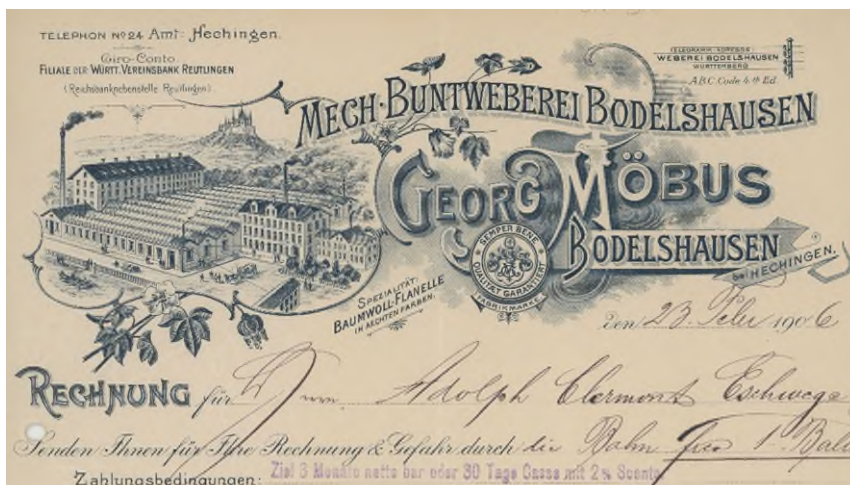 TELEPHON No 24 Amt: Hechingen.
Giro-Conto
FILIALE DER WÜRTT. VEREINSBANK REUTLINGEN
(Reichsbanknebenstelle Reutlingen)
TELEGRAMM-ADRESSE:
WEBEREI BODELSHAUSEN
WÜRTTEMBERG
A.B.C. Code 4th Ed.
MECH. BUNTWEBEREI BODELSHAUSEN
GEORG MÖBUS
BODELSHAUSEN
bei HECHINGEN.
SEMPER BENE
QUALITÆT GARANTIERT
FABRIKMARKE
SPEZIALITÄT:
BAUMWOLL-FLANELLE
IN AECHTEN FARBEN.
den 23. Febr 1906
RECHNUNG für Adolph Clermont Eschwege
Senden Ihnen für Ihre Rechnung & Gefahr durch die Bahn 1. Ball
Zahlungsbedingungen: Ziel 3 Monate netto bar oder 30 Tage Cassa mit 2% Sconto.